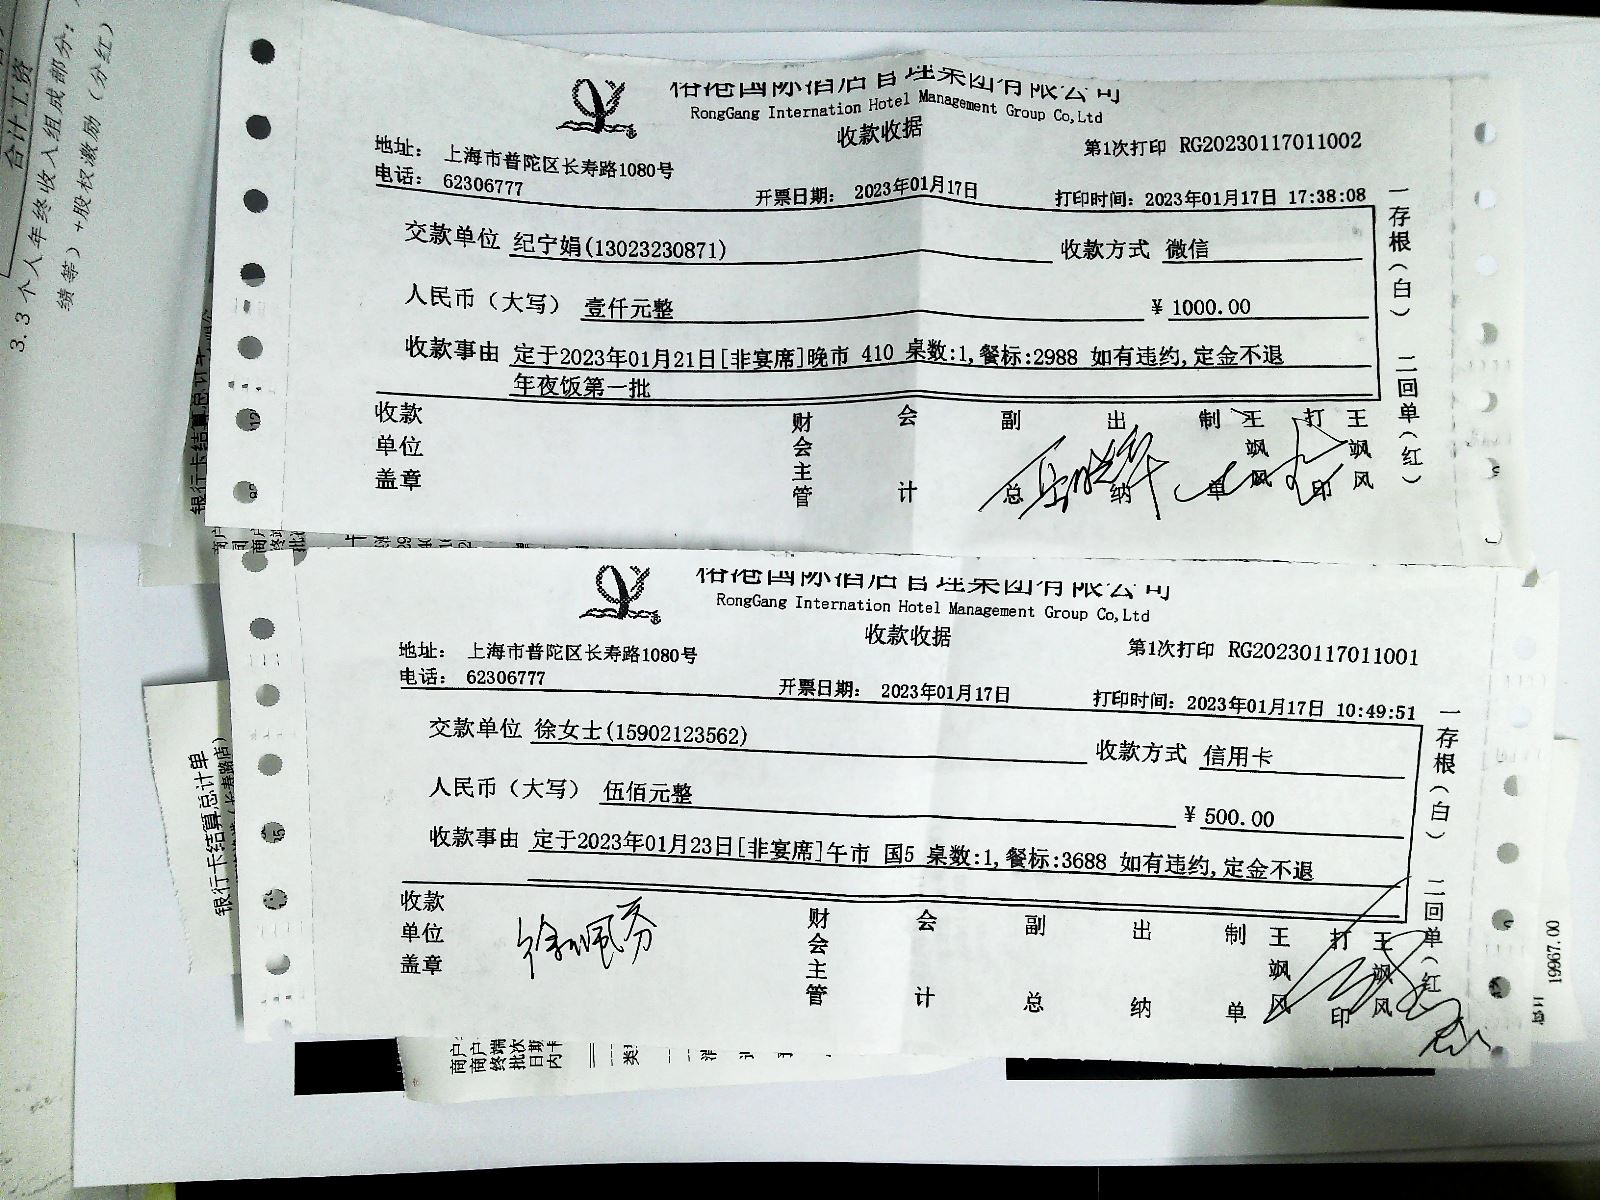 合计工资
3.3 个人年终收入组成部分：
绩等）+股权激励（分红）
银行卡结算总计单
国际酒店管理集团有限公司
RongGang Internation Hotel Management Group Co,Ltd
收款收据
第1次打印 RG20230117011002
地址： 上海市普陀区长寿路1080号
电话： 62306777
开票日期： 2023年01月17日
打印时间：2023年01月17日 17:38:08
交款单位 纪宁娟(13023230871)
收款方式 微信
人民币（大写） 壹仟元整
¥ 1000.00
收款事由 定于2023年01月21日[非宴席]晚市 410 桌数:1,餐标:2988 如有违约,定金不退
年夜饭第一批
收款单位盖章
财会主管
会计
副总
出纳
制单
王飒风
打印
王飒风
一存根（白）
二回单（红）
国际酒店管理集团有限公司
RongGang Internation Hotel Management Group Co,Ltd
收款收据
第1次打印 RG20230117011001
地址： 上海市普陀区长寿路1080号
电话： 62306777
开票日期： 2023年01月17日
打印时间：2023年01月17日 10:49:51
交款单位 徐女士(15902123562)
收款方式 信用卡
人民币（大写） 伍佰元整
¥ 500.00
收款事由 定于2023年01月23日[非宴席]午市 国5 桌数:1,餐标:3688 如有违约,定金不退
收款单位盖章
徐佩芬
财会主管
会计
副总
出纳
制单
王飒风
打印
王飒风
一存根（白）
二回单（红）
银行卡结算总计单
19967.00